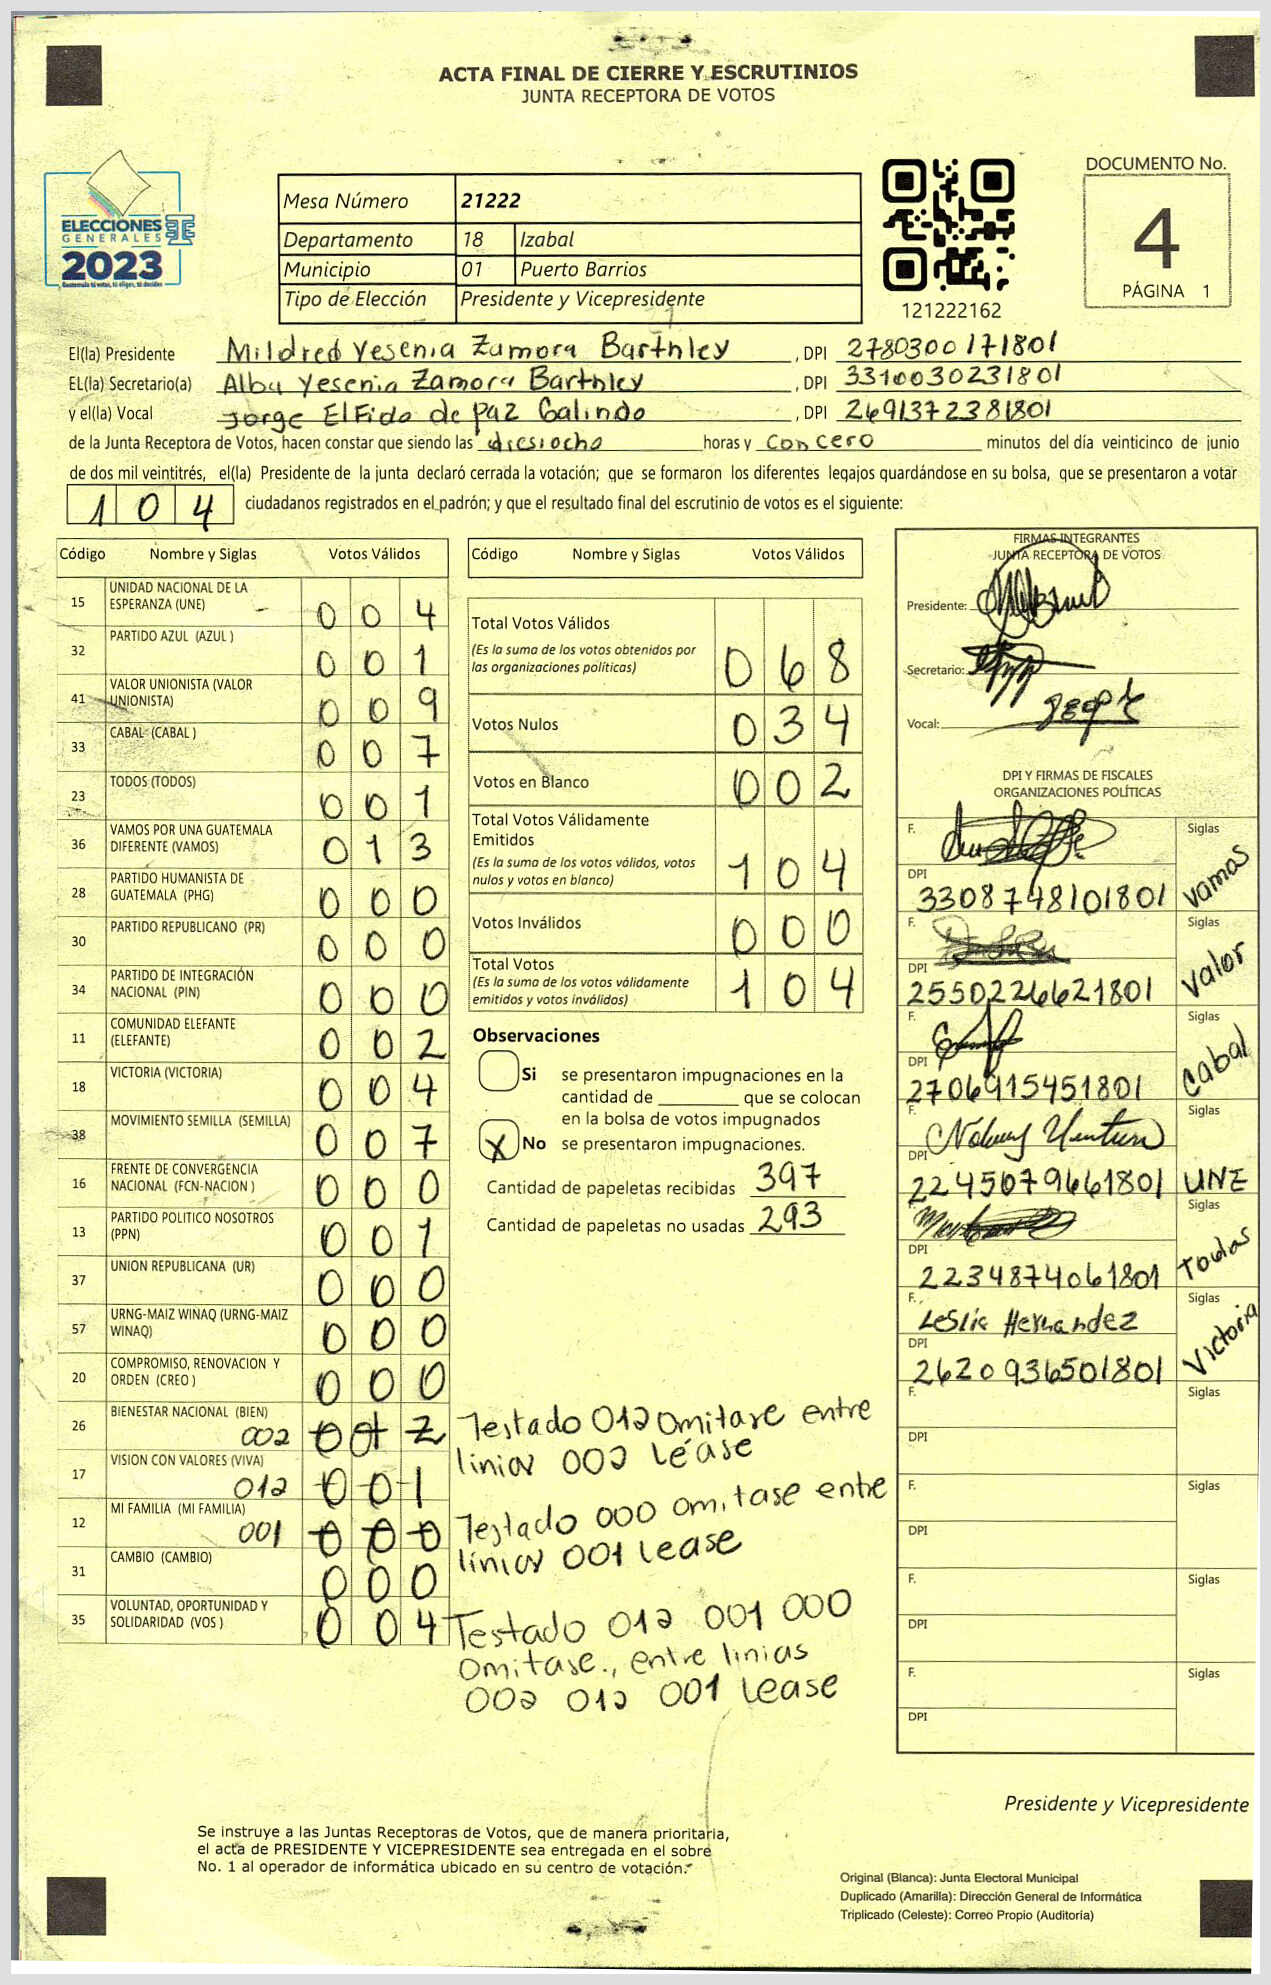 ACTA FINAL DE CIERRE Y ESCRUTINIOS
JUNTA RECEPTORA DE VOTOS
ELECCIONES
GENERALES
2023
Guatemala tú votas, tú eliges, tú decides
Mesa Número 21222
Departamento 18 Izabal
Municipio 01 Puerto Barrios
Tipo de Elección Presidente y Vicepresidente
121222162
DOCUMENTO No.
4
PÁGINA 1
El(la) Presidente Mildred Yesenia Zamora Barthley , DPI 2780300171801
EL(la) Secretario(a) Alba Yesenia Zamora Barthley , DPI 3310030231801
y el(la) Vocal Jorge Elfido de paz Galindo , DPI 2691372381801
de la Junta Receptora de Votos, hacen constar que siendo las diesiocho horas y con cero minutos del día veinticinco de junio
de dos mil veintitrés, el(la) Presidente de la junta declaró cerrada la votación; que se formaron los diferentes legajos quardándose en su bolsa, que se presentaron a votar
104 ciudadanos registrados en el padrón; y que el resultado final del escrutinio de votos es el siguiente:
Código Nombre y Siglas Votos Válidos
15 UNIDAD NACIONAL DE LA ESPERANZA (UNE) 004
32 PARTIDO AZUL (AZUL ) 001
41 VALOR UNIONISTA (VALOR UNIONISTA) 009
33 CABAL (CABAL ) 007
23 TODOS (TODOS) 001
36 VAMOS POR UNA GUATEMALA DIFERENTE (VAMOS) 013
28 PARTIDO HUMANISTA DE GUATEMALA (PHG) 000
30 PARTIDO REPUBLICANO (PR) 000
34 PARTIDO DE INTEGRACIÓN NACIONAL (PIN) 000
11 COMUNIDAD ELEFANTE (ELEFANTE) 002
18 VICTORIA (VICTORIA) 004
38 MOVIMIENTO SEMILLA (SEMILLA) 007
16 FRENTE DE CONVERGENCIA NACIONAL (FCN-NACION ) 000
13 PARTIDO POLITICO NOSOTROS (PPN) 001
37 UNION REPUBLICANA (UR) 000
57 URNG-MAIZ WINAQ (URNG-MAIZ WINAQ) 000
20 COMPROMISO, RENOVACION Y ORDEN (CREO ) 000
26 BIENESTAR NACIONAL (BIEN) 002 012
17 VISION CON VALORES (VIVA) 012 001
12 MI FAMILIA (MI FAMILIA) 001 000
31 CAMBIO (CAMBIO) 000
35 VOLUNTAD, OPORTUNIDAD Y SOLIDARIDAD (VOS ) 004
Código Nombre y Siglas Votos Válidos
Total Votos Válidos 068
(Es la suma de los votos obtenidos por
las organizaciones políticas)
Votos Nulos 034
Votos en Blanco 002
Total Votos Válidamente
Emitidos 104
(Es la suma de los votos válidos, votos
nulos y votos en blanco)
Votos Inválidos 000
Total Votos 104
(Es la suma de los votos válidamente
emitidos y votos inválidos)
Observaciones
Si se presentaron impugnaciones en la
cantidad de ________ que se colocan
en la bolsa de votos impugnados
X No se presentaron impugnaciones.
Cantidad de papeletas recibidas 397
Cantidad de papeletas no usadas 293
Testado 012 omitase entre
linias 002 Léase
Testado 000 omitase entre
linias 001 lease
Testado 012 001 000
omitase., entre linias
002 012 001 lease
FIRMAS INTEGRANTES
JUNTA RECEPTORA DE VOTOS
Presidente:
Secretario:
Vocal:
DPI Y FIRMAS DE FISCALES
ORGANIZACIONES POLÍTICAS
F. Siglas
DPI 3308748101801 vamos
F. Siglas
DPI 2550226621801 valor
F. Siglas
DPI 2706915451801 cabal
F. Siglas
DPI 2245079661801 UNE
F. Siglas
DPI 2234874061801 Todos
F. Leslie Hernandez Siglas
DPI 2620936501801 Victoria
F. Siglas
DPI
F. Siglas
DPI
F. Siglas
DPI
F. Siglas
DPI
Presidente y Vicepresidente
Se instruye a las Juntas Receptoras de Votos, que de manera prioritaria,
el acta de PRESIDENTE Y VICEPRESIDENTE sea entregada en el sobre
No. 1 al operador de informática ubicado en su centro de votación.
Original (Blanca): Junta Electoral Municipal
Duplicado (Amarilla): Dirección General de Informática
Triplicado (Celeste): Correo Propio (Auditoría)